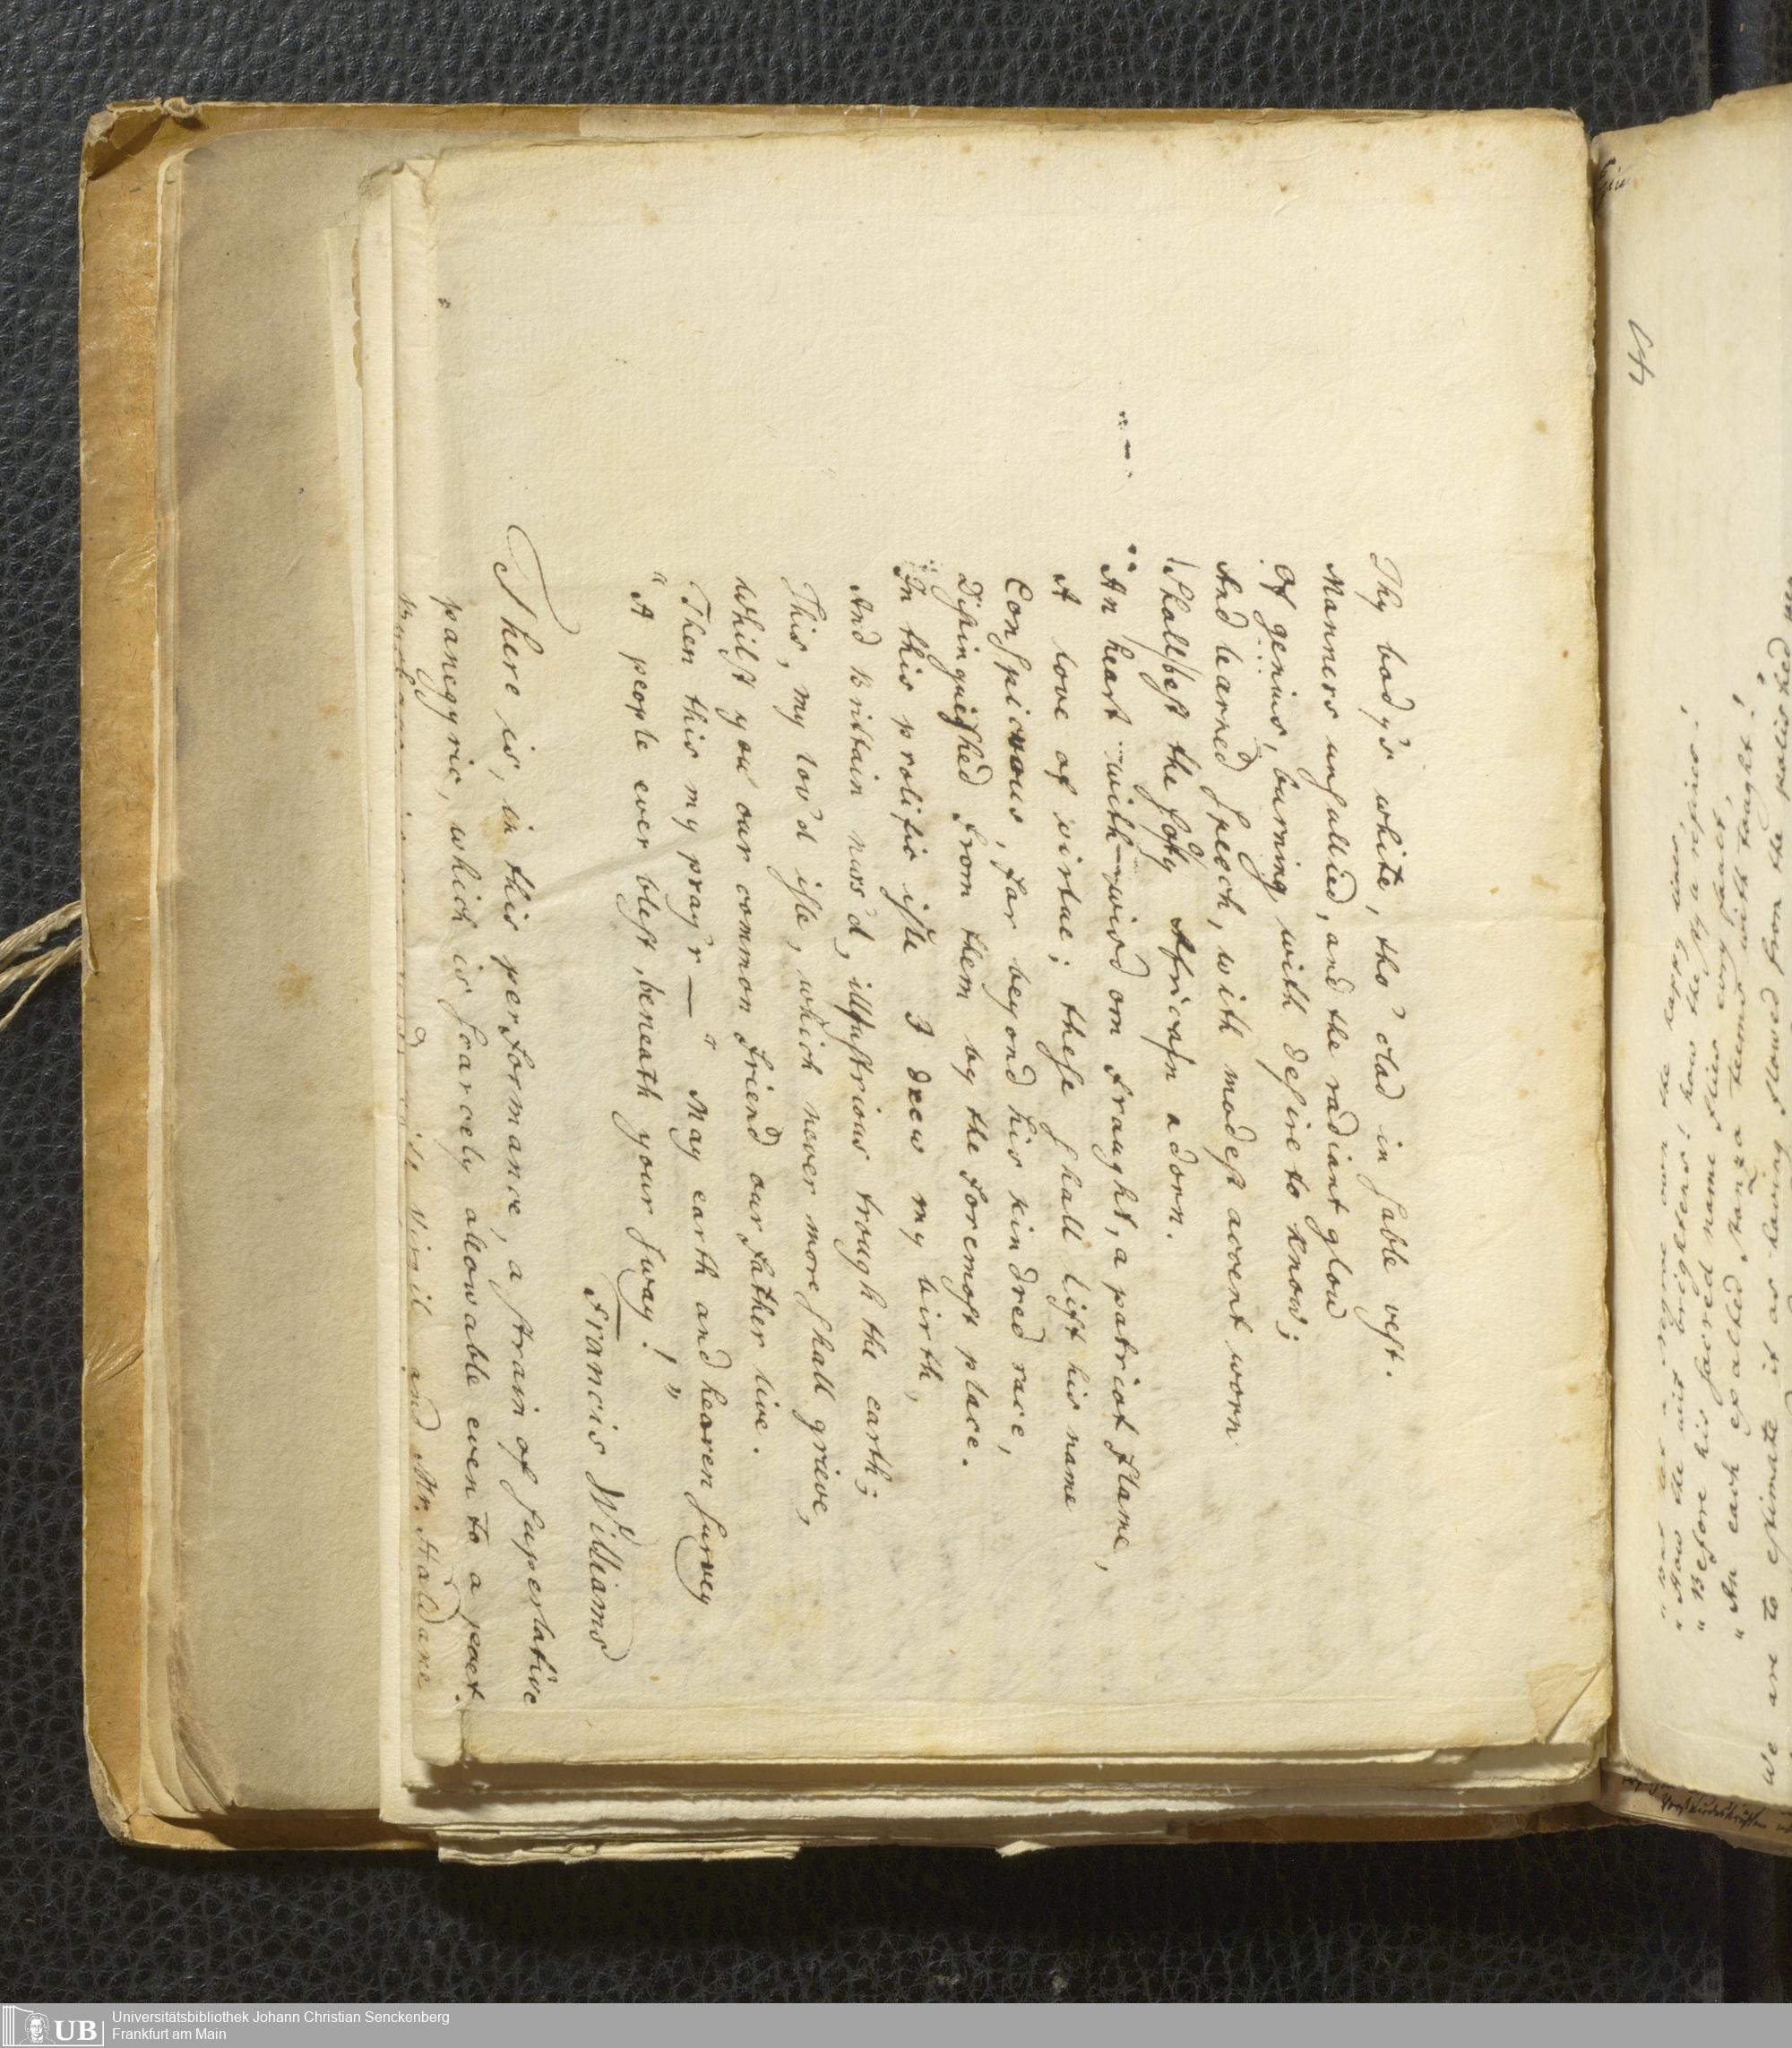 Thy body's white, tho' clad in sable vest.
Manners unsullied, and the radiant glow
Of genius, burning with desire to know;
And learned speech, with modest accent worn
Shall best the sooty African adorn.
An heart with wisdom fraught, a patriot flame,
A love of virtue; these shall lift his name
Conspicuous, far beyond his kindred race,
Distinguished from them by the foremost place.
In this prolific isle I drew my birth,
And Britain nurs'd, illustrious trough the earth;
This, my lov'd isle, which never more shall grieve,
Whilst you our common friend our father live.
Then this my pray'r — "May earth and heaven survey
"A people ever blest, beneath your sway!"
Francis Williams
There is, in this performance, a strain of superlative
panegyric, which is scarcely allowable even to a poet.
Virgil and Mr. Haldane
44
"How the wits bigotted; how the style refines!
"Before his sacred name flies every fault,
"And each exalted stanza teems with thought!"
We are to estimate it as having flowed from the polished
Universitätsbibliothek Johann Christian Senckenberg
Frankfurt am Main
UB